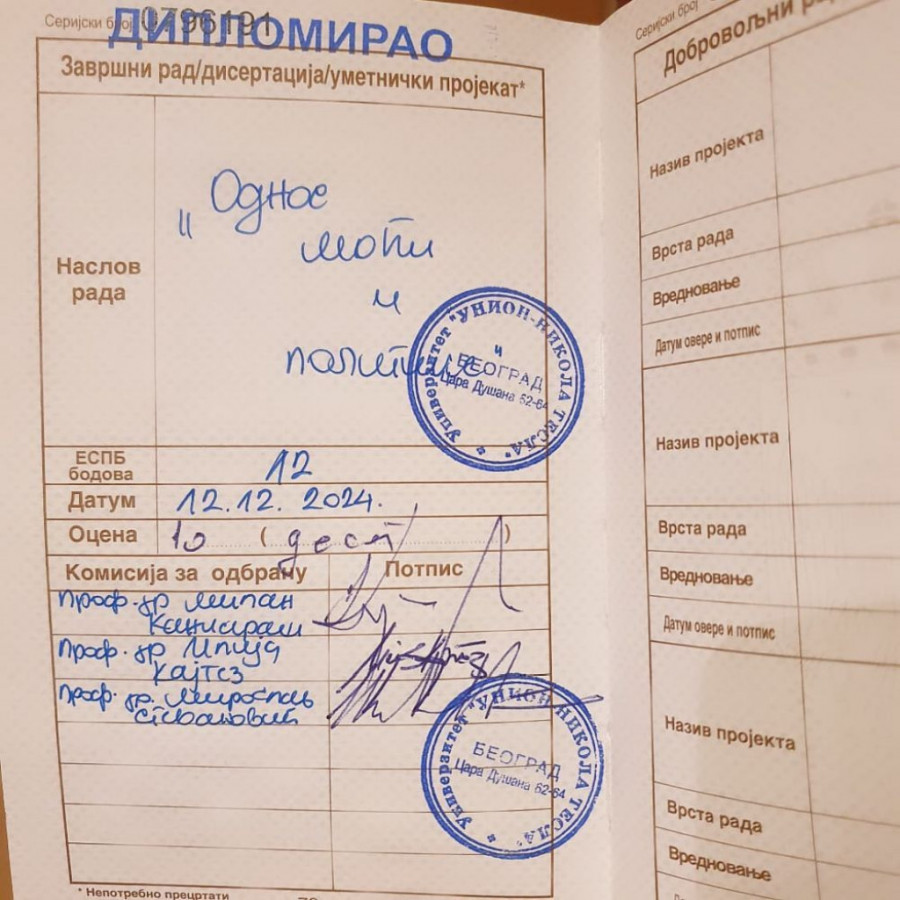 Серијски број 0796191
ДИПЛОМИРАО
Завршни рад/дисертација/уметнички пројекат*
Наслов рада
„Однос
моћи
и
политике
Универзитет "УНИОН-НИКОЛА ТЕСЛА"
и
БЕОГРАД
Цара Душана 62-64
ЕСПБ бодова
12
Датум
12.12. 2024.
Оцена
10 (десет)
Комисија за одбрану
Потпис
Проф. др Милан
Проф. др Илија
Кајтез
Проф. др. Мирослав
Стевановић
Универзитет "УНИОН-НИКОЛА ТЕСЛА"
БЕОГРАД
Цара Душана 62-64
* Непотребно прецртати
Серијски број
Добровољни
Назив пројекта
Врста рада
Вредновање
Датум овере и потпис
Назив пројекта
Врста рада
Вредновање
Датум овере и потпис
Назив пројекта
Врста рада
Вредновање